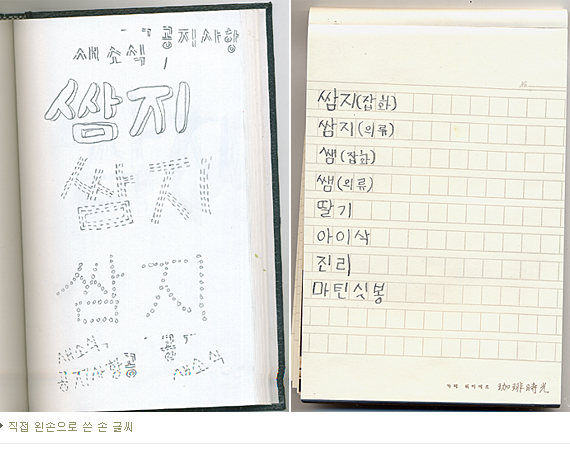 공지사항
새소식
쌈지
쌈지
쌈지
새소식,
공지사항
새소식
쌈지(잡화)
쌈지(의류)
쌤(잡화)
쌤(의류)
딸기
아이삭
진리
마틴싯봉
珈琲時光
직접 왼손으로 쓴 손 글씨